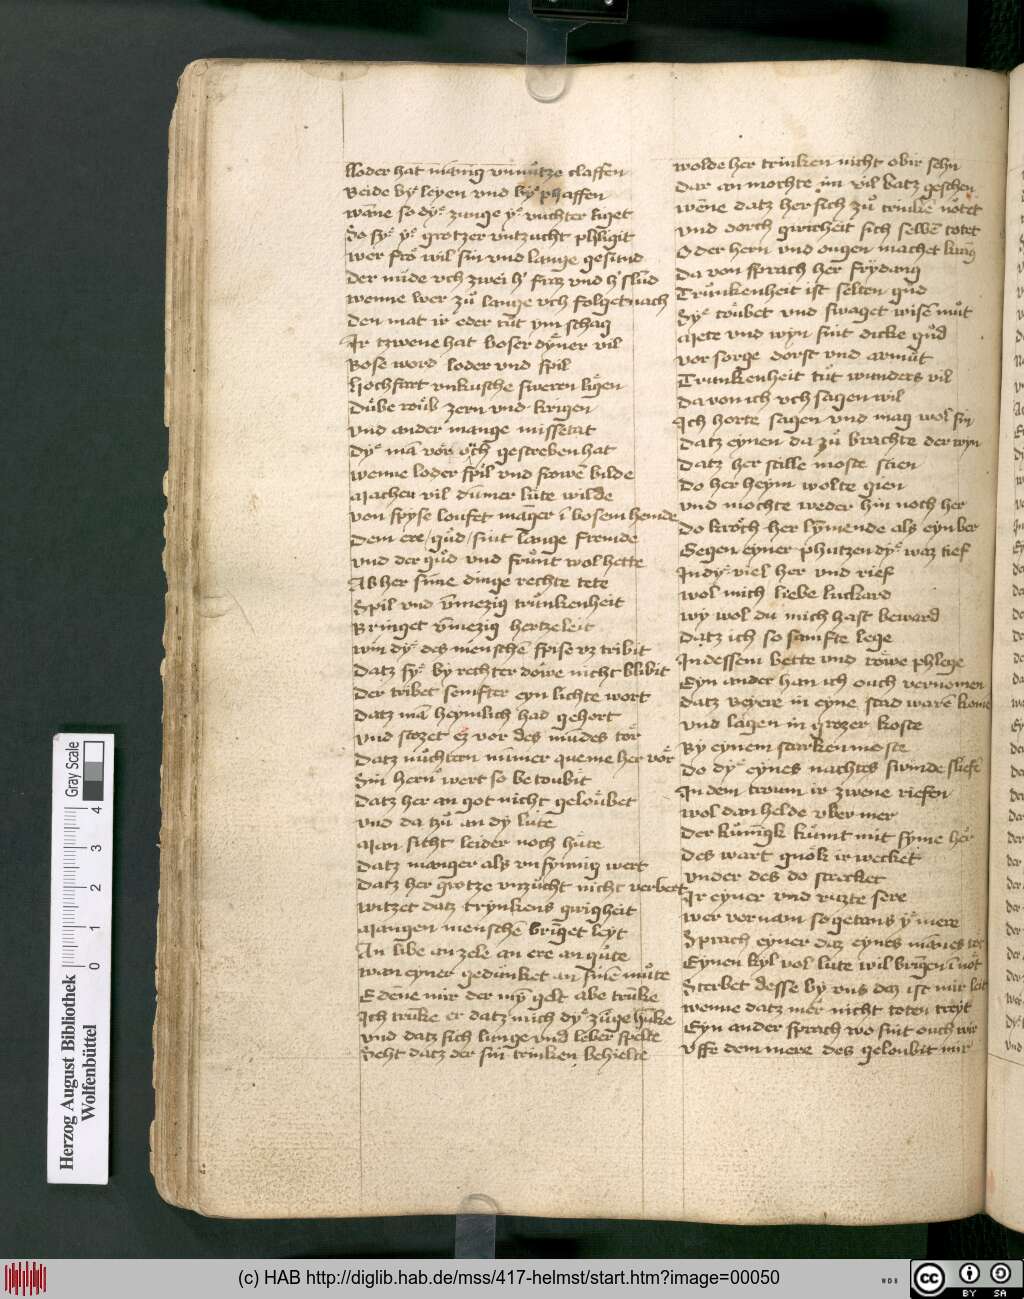 lloder hat mānig vnnůtze claffen
Beide by leyen vnd by phaffen
wāne so dye zunge ye vuchter liget
So sye ye grotzer vntzucht phligit
wer fro wil sin vnd lange gesund
der mide vch zwei h' fraz vnd h' slūd
wenne wer zů lange vch folget nach
den mat ir eder tůt ym schag
Ir tzwene hat boser dyner vil
Bose word loder vnd spil
Hochfart vnkusche sweren ligen
Dube roub zern vnd krigen
vnd ander mange missetat
dye mā vor och gescreben hat
wenne loder spil vnd frowē bilde
Machen vil dūmer lute wilde
von spyse loufet māger ī bosem hemde
dem ere / gůd / sint lange fremde
vnd der gůd vnd frůnt wol hette
Ab her sine dinge rechte tete
Spil vnd vmezig trůnkenheit
Bringet vmezig hertzeleit
win dye des menschē spise vz tribit
Datz sye by rechter dowe nicht blibit
der tribet semfter eyn lichte wort
Datz mā heymlich had gehort
vnd stozet ez vor des mūdes tor
Datz nůchtern nimer queme her vor
Sin hern wert so betoubit
Datz her an got nicht geloubet
vnd da tzů an dy lute
Man sicht leider noch hute
Datz manger als vnsynnig wert
Datz her grotze vnzůcht nicht verbert
witzet datz trynkens girigheit
Mangen menschē bringet leyt
An libe an zele an ere an gůte
wan eyner gedunket an sinē můte
E dēne mir der my gelt abe trūke
Ich trūke er datz mich dye zūge hūke
vnd datz sich lunge vnd leber spelte
Seht datz der sin trinken behielte
wolde her trinken nicht obir sehn
Dar an mochte im vil batz geschen
wēne datz her sich zů trinkē notet
vnd dorch giricheit sich selbē totet
Oder hern vnd ougen machet krāg
Da von sprach her frydang
Trůnkenheit ist selten gůd
Sye trůbet vnd swaget wisē můt
Mete vnd wyn sint dicke gůd
vor sorge dorst vnd armůt
Trunkenheit tůt wunders vil
Da von ich vch sagen wil
Ich horte sagen vnd mag wol sin
Datz eynen da zů brachte der wyn
Datz her stille moste sten
Do her heym wolte gien
vnd mochte weder hin noch her
Do kroch her lymende als eyn ber
Gegen eyner phutzen dye waz tief
In dye viel her vnd rief
wol mich liebe luckard
wy wol du mich hast beward
Datz ich so samfte lege
In dessem bette vnd rowe phlege
Eyn ander han ich ouch vernomen
Datz Beyere in eyne stad warē kome
vnd lagen in grozer koste
By eynem starken moste
Do dye eynes nachtes swinde slief
In dem troum ir zwene riefen
wol dan helde vber mer
der kunigk kumt mit syme her
des wart gnok ir wecket
vnder des do strecket
Ir eyner vnd ruzte sere
wer vornam so getans ye mere
Sprach eyner datz eynes mānes tot
Eynen kyl vol lute wil bringen ī not
Sterbet desse by vns daz ist mir leit
wenne datz mer nicht toten treyt
Eyn ander sprach wo sint ouch wir
vffe dem mere des geloubit mir
Herzog August Bibliothek
Wolfenbüttel
Gray Scale
0 1 2 3 4
(c) HAB http://diglib.hab.de/mss/417-helmst/start.htm?image=00050
WDB
cc BY SA